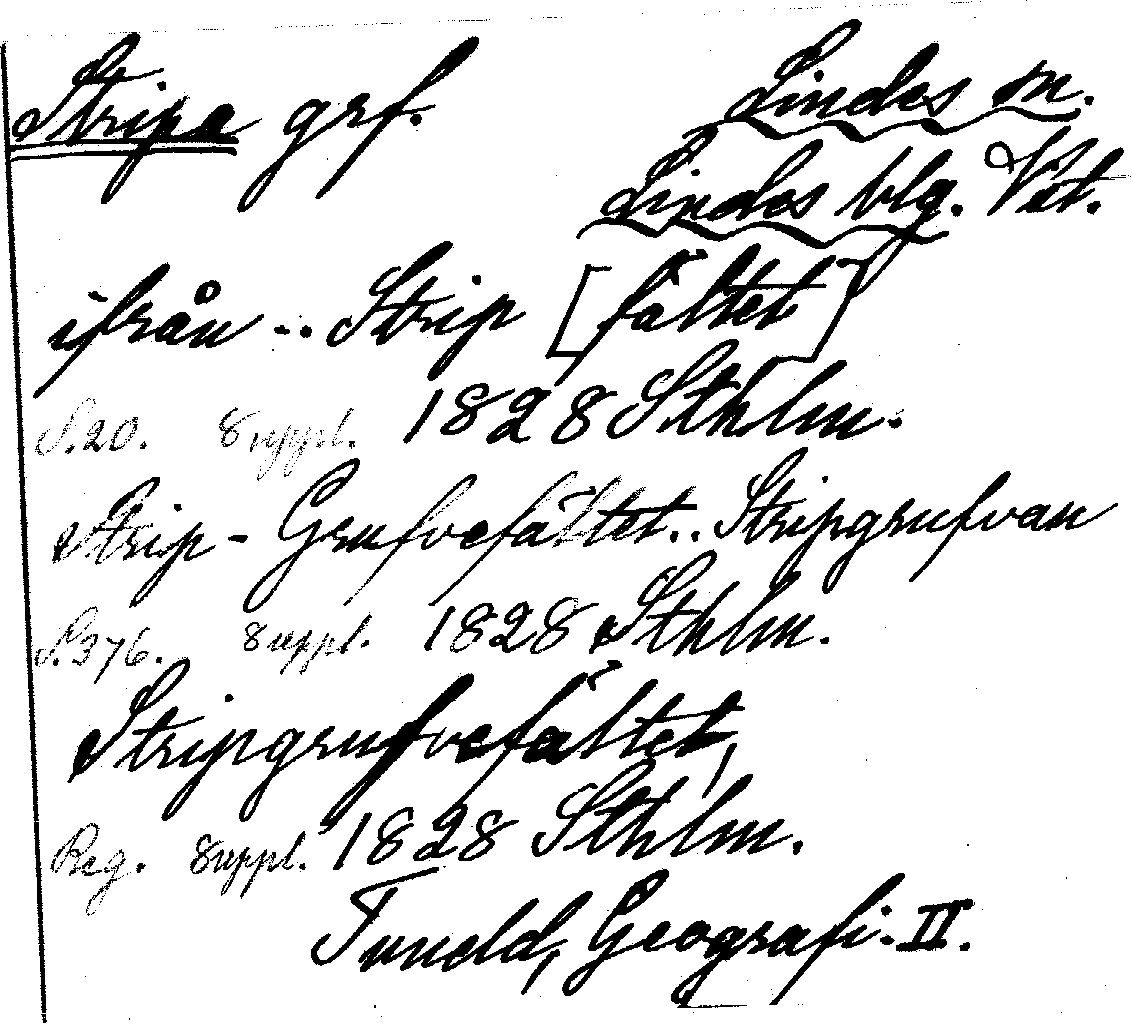 Stripa grf. Lindes sn.
Lindes blg. Vstl.
ifrån .. Strip [fältet]
S.20. Suppl. 1828 Sthlm.
Strip-Grufvefältet.. Stripgrufvan
S.376. Suppl. 1828 Sthlm.
Stripgrufvefältet,
Reg. Suppl. 1828 Sthlm.
Tuneld, Geografi. II.